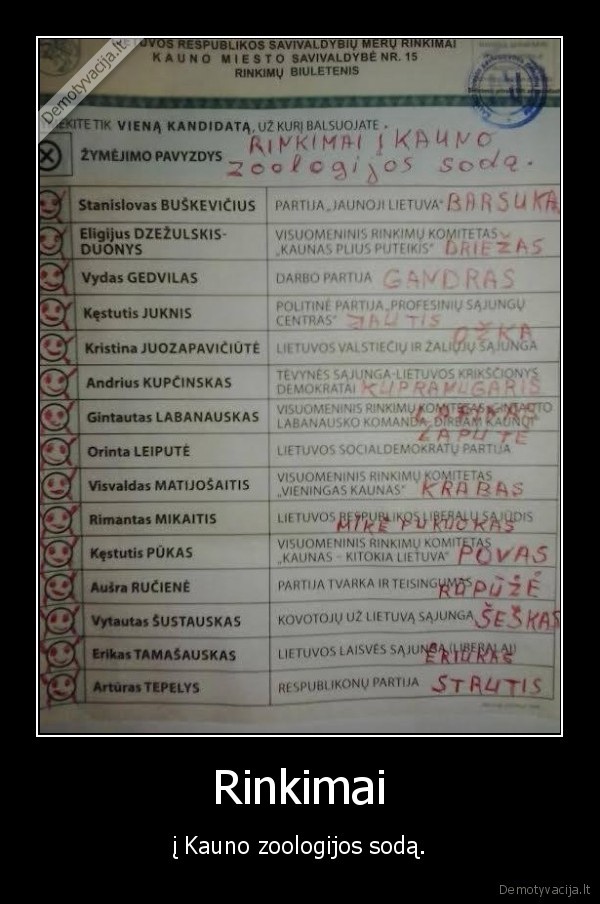 Demotyvacija.lt
LIETUVOS RESPUBLIKOS SAVIVALDYBIŲ MERŲ RINKIMAI
KAUNO MIESTO SAVIVALDYBĖ NR. 15
RINKIMŲ BIULETENIS
TIK VIENĄ KANDIDATĄ, UŽ KURĮ BALSUOJATE
RINKIMAI Į KAUNO
ŽYMĖJIMO PAVYZDYS
zoologijos sodą.
Stanislovas BUŠKEVIČIUS PARTIJA „JAUNOJI LIETUVA“ BARSUKAS
Eligijus DZEŽULSKIS- VISUOMENINIS RINKIMŲ KOMITETAS
DUONYS „KAUNAS PLIUS PUTEIKIS“ DRIEŽAS
Vydas GEDVILAS DARBO PARTIJA GANDRAS
Kęstutis JUKNIS POLITINĖ PARTIJA „PROFESINIŲ SĄJUNGŲ
CENTRAS“ JAUTIS
OŽKA
Kristina JUOZAPAVIČIŪTĖ LIETUVOS VALSTIEČIŲ IR ŽALIŲJŲ SĄJUNGA
Andrius KUPČINSKAS TĖVYNĖS SĄJUNGA-LIETUVOS KRIKŠČIONYS
DEMOKRATAI KUPRANUGARIS
Gintautas LABANAUSKAS VISUOMENINIS RINKIMŲ KOMITETAS „GINTAUTO
LABANAUSKO KOMANDA „DIRBAM KAUNUI“
LAPUTE
Orinta LEIPUTĖ LIETUVOS SOCIALDEMOKRATŲ PARTIJA
Visvaldas MATIJOŠAITIS VISUOMENINIS RINKIMŲ KOMITETAS
„VIENINGAS KAUNAS“ KRABAS
Rimantas MIKAITIS LIETUVOS RESPUBLIKOS LIBERALŲ SĄJŪDIS
MIKĖ PUKUOKAS
Kęstutis PŪKAS VISUOMENINIS RINKIMŲ KOMITETAS
„KAUNAS – KITOKIA LIETUVA“ POVAS
Aušra RUČIENĖ PARTIJA TVARKA IR TEISINGUMAS
RUPŪŽĖ
Vytautas ŠUSTAUSKAS KOVOTOJŲ UŽ LIETUVĄ SĄJUNGA ŠEŠKAS
Erikas TAMAŠAUSKAS LIETUVOS LAISVĖS SĄJUNGA (LIBERALAI)
ĖRIUKAS
Artūras TEPELYS RESPUBLIKONŲ PARTIJA STRUTIS
Rinkimai
į Kauno zoologijos sodą.
Demotyvacija.lt